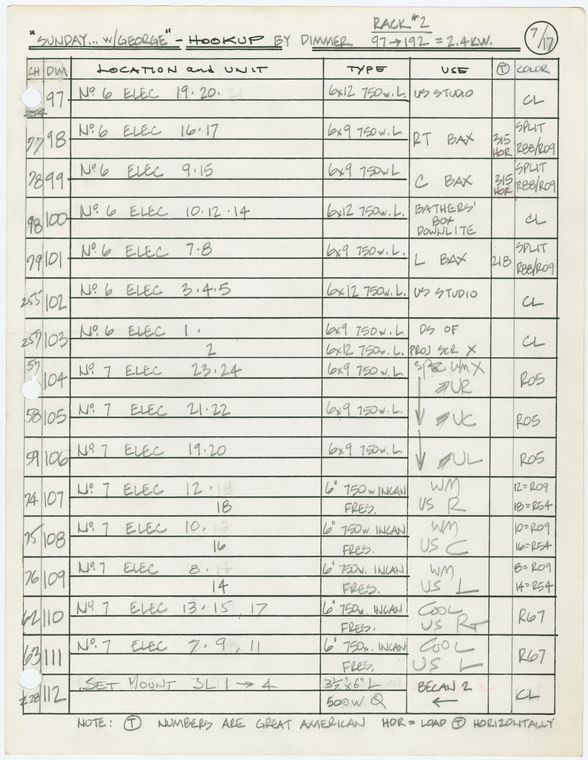 RACK #2
"SUNDAY... W/GEORGE" - HOOKUP BY DIMMER 97→192 = 2.4KW. 7/17
CH DIM LOCATION and UNIT TYPE USE T COLOR
97 Nº 6 ELEC 19·20· 21 6x12 750 W.L. US STUDIO CL
77 98 Nº 6 ELEC 16·17 6x9 750 W.L RT BAX 315 HOR SPLIT R88/R09
78 99 Nº 6 ELEC 9·15 6x9 750WL C BAX 315 HOR SPLIT R88/R09
98 100 Nº 6 ELEC 10·12·14 6x12 750W.L. BATHERS' BOX DOWNLITE CL
79 101 Nº 6 ELEC 7·8 6x9 750W.L. L BAX 218 SPLIT R88/R09
255 102 Nº 6 ELEC 3·4·5 6x12 750W.L. US STUDIO CL
257 103 Nº 6 ELEC 1. 6x9 750W.L. DS OF CL
2 6x12 750W.L. PROJ SCR X
57 104 Nº 7 ELEC 23·24 6x9 750W.L. WM X UR R05
58 105 Nº 7 ELEC 21·22 6x9 750W.L. ↓ UC R05
59 106 Nº 7 ELEC 19·20 6x9 750W.L ↓ UL R05
74 107 Nº 7 ELEC 12· 6" 750W INCAN WM 12=R09
18 FRES. US R 18=R54
75 108 Nº 7 ELEC 10. 6" 750W. INCAN WM 10=R09
16 FRES. US C 16=R54
76 109 Nº 7 ELEC 8· 6" 750W. INCAN WM 8=R09
14 FRES. US L 14=R54
62 110 Nº 7 ELEC 13·15, 17 6" 750W. INCAN COOL R67
FRES. US RT
63 111 Nº 7 ELEC 7·9, 11 6" 750W. INCAN COOL R67
FRES. US L
228 112 SET MOUNT SL 1 → 4 3½"x6" L BECAN 2 CL
500W Q ←
NOTE: T NUMBERS ARE GREAT AMERICAN HOR = LOAD T HORIZONTALLY